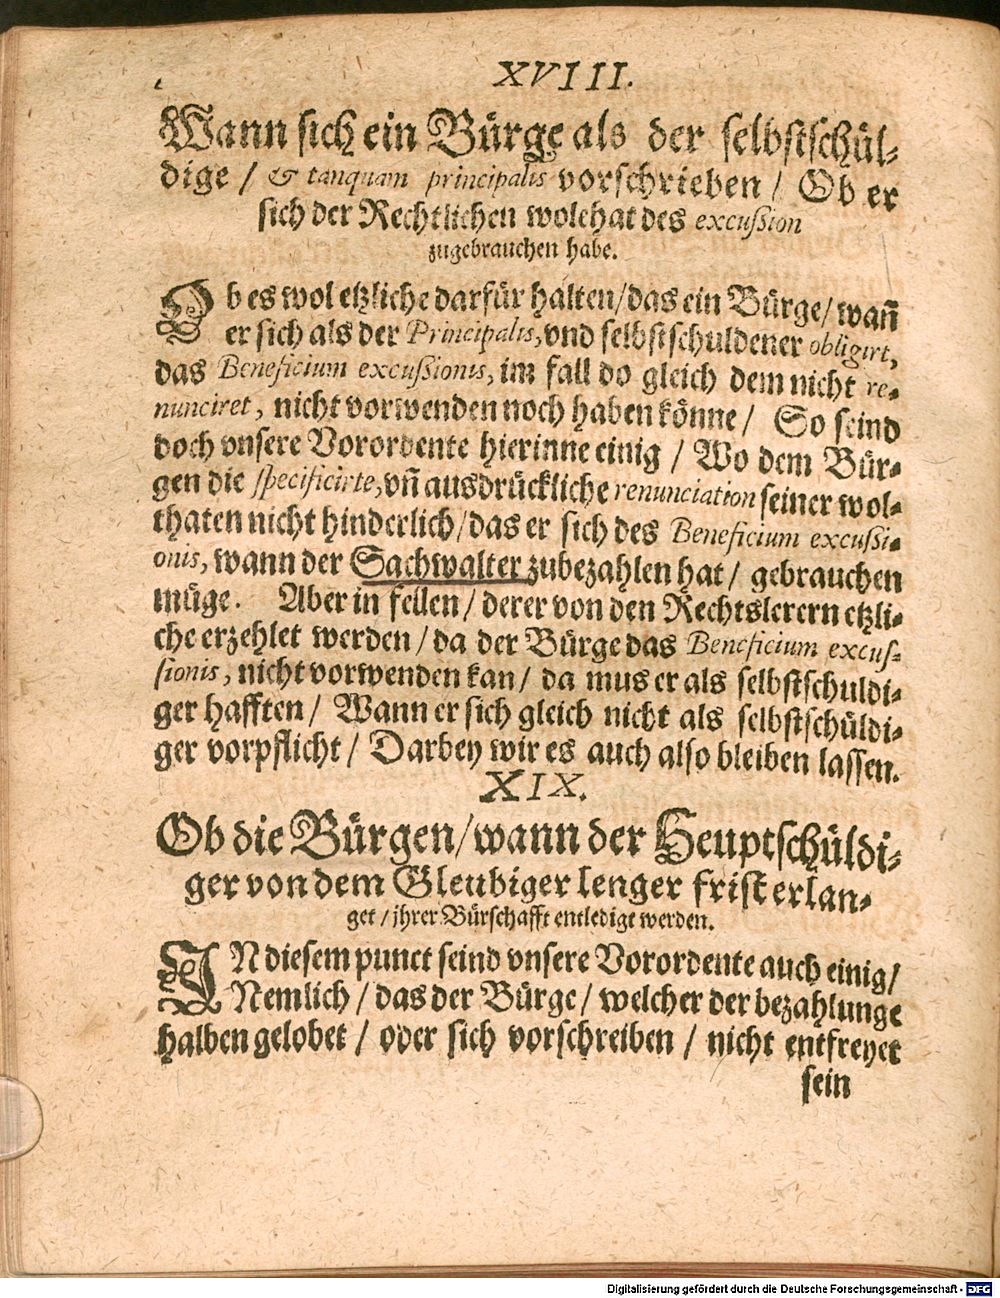 XVIII.
Wann sich ein Bürge als der selbstschül-
dige / & tanquam principalis vorschrieben / Ob er
sich der Rechtlichen wolthat des excußion
zugebrauchen habe.
Ob es wol etzliche darfür halten / das ein Bürge / wañ
er sich als der Principalis, vnd selbstschuldener obligirt,
das Beneficium excußionis, im fall do gleich dem nicht re-
nunciret, nicht vorwenden noch haben könne / So seind
doch vnsere Vorordente hierinne einig / Wo dem Bür-
gen die specificirte, vñ ausdrückliche renunciation seiner wol-
thaten nicht hinderlich / das er sich des Beneficium excußi-
onis, wann der Sachwalter zubezahlen hat / gebrauchen
müge. Aber in fellen / derer von den Rechtslerern etzli-
che erzehlet werden / da der Bürge das Beneficium excus-
sionis, nicht vorwenden kan / da mus er als selbstschuldi-
ger hafften / Wann er sich gleich nicht als selbstschüldi-
ger vorpflicht / Darbey wir es auch also bleiben lassen.
XIX.
Ob die Bürgen / wann der Heuptschüldi-
ger von dem Gleubiger lenger frist erlan-
get / jhrer Bürschafft entledigt werden.
IN diesem punct seind vnsere Vorordente auch einig /
Nemlich / das der Bürge / welcher der bezahlunge
halben gelobet / oder sich vorschreiben / nicht entfreyet
sein
Digitalisierung gefördert durch die Deutsche Forschungsgemeinschaft - DFG